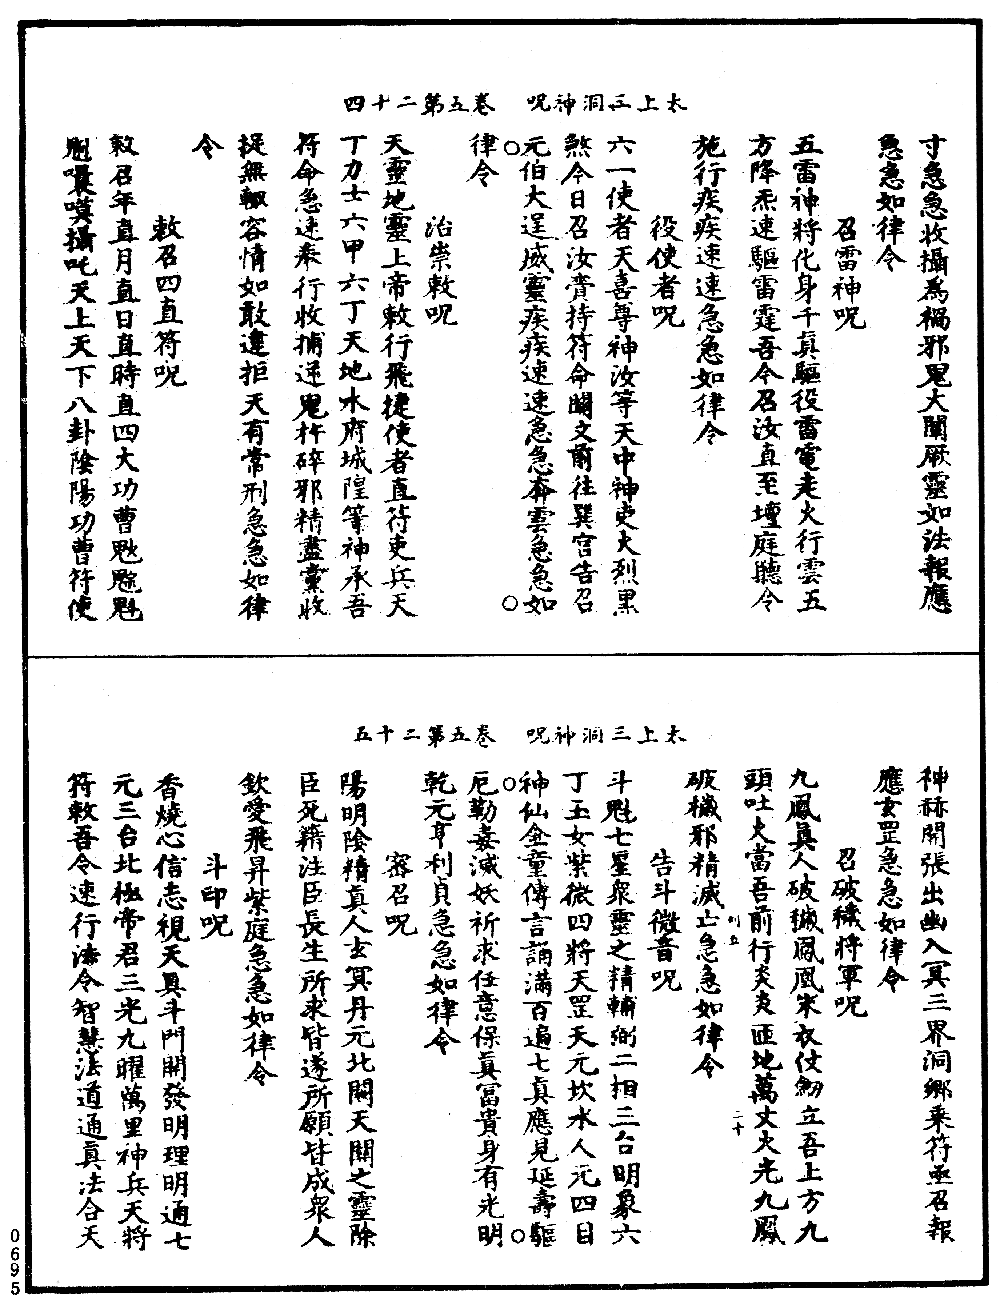 太上三洞神呪　卷五第二十四
寸急急收攝爲禍邪鬼大闡厥靈如法報應
急急如律令
召雷神呪
五雷神將化身千真驅役雷電走火行雲五
方降炁速驅雷霆吾今召汝直至壇庭聽令
施行疾疾速速急急如律令
役使者呪
六一使者天喜尊神汝等天中神吏火烈黑
煞今日召汝賫持符命關文前往巽宮告召
元伯大逞威靈疾疾速速急急奔雲急急如
律令
治祟敕呪
天靈地靈上帝敕行飛捷使者直符吏兵天
丁力士六甲六丁天地水府城隍等神承吾
符命急速奉行收捕逆鬼杵碎邪精盡棄收
捉無輙容情如敢違拒天有常刑急急如律
令
敕召四直符呪
敕召年直月直日直時直四大功曹
嚗嘆攝吒天上天下八卦陰陽功曹符使
太上三洞神呪　卷五第二十五
神祢開張出幽入冥三界洞鄉乘符亟召報
應玄罡急急如律令
召破穢將軍呪
九鳳真人破穢鳳凰宋衣仗劒立吾上方九
頭吐火當吾前行炎炎匝地萬丈火光九鳳
破穢邪精滅亡急急如律令
告斗微音呪
斗魁七星衆靈之精輔弼二相三台明象六
丁玉女紫微四將天罡天元坎水人元四目
神仙金童傳言誦滿百遍七真應見延壽驅
厄勒毒滅妖祈求任意保真富貴身有光明
乾元亨利貞急急如律令
密召呪
陽明陰精真人玄冥丹元北關天關之靈除
臣死籍注臣長生所求皆遂所願皆成衆人
欽愛飛昇紫庭急急如律令
斗印呪
香燒心信志視天真斗門開發明理明通七
元三台北極帝君三光九曜萬里神兵天將
符敕吾令速行法令智慧法道通真法合天
0695